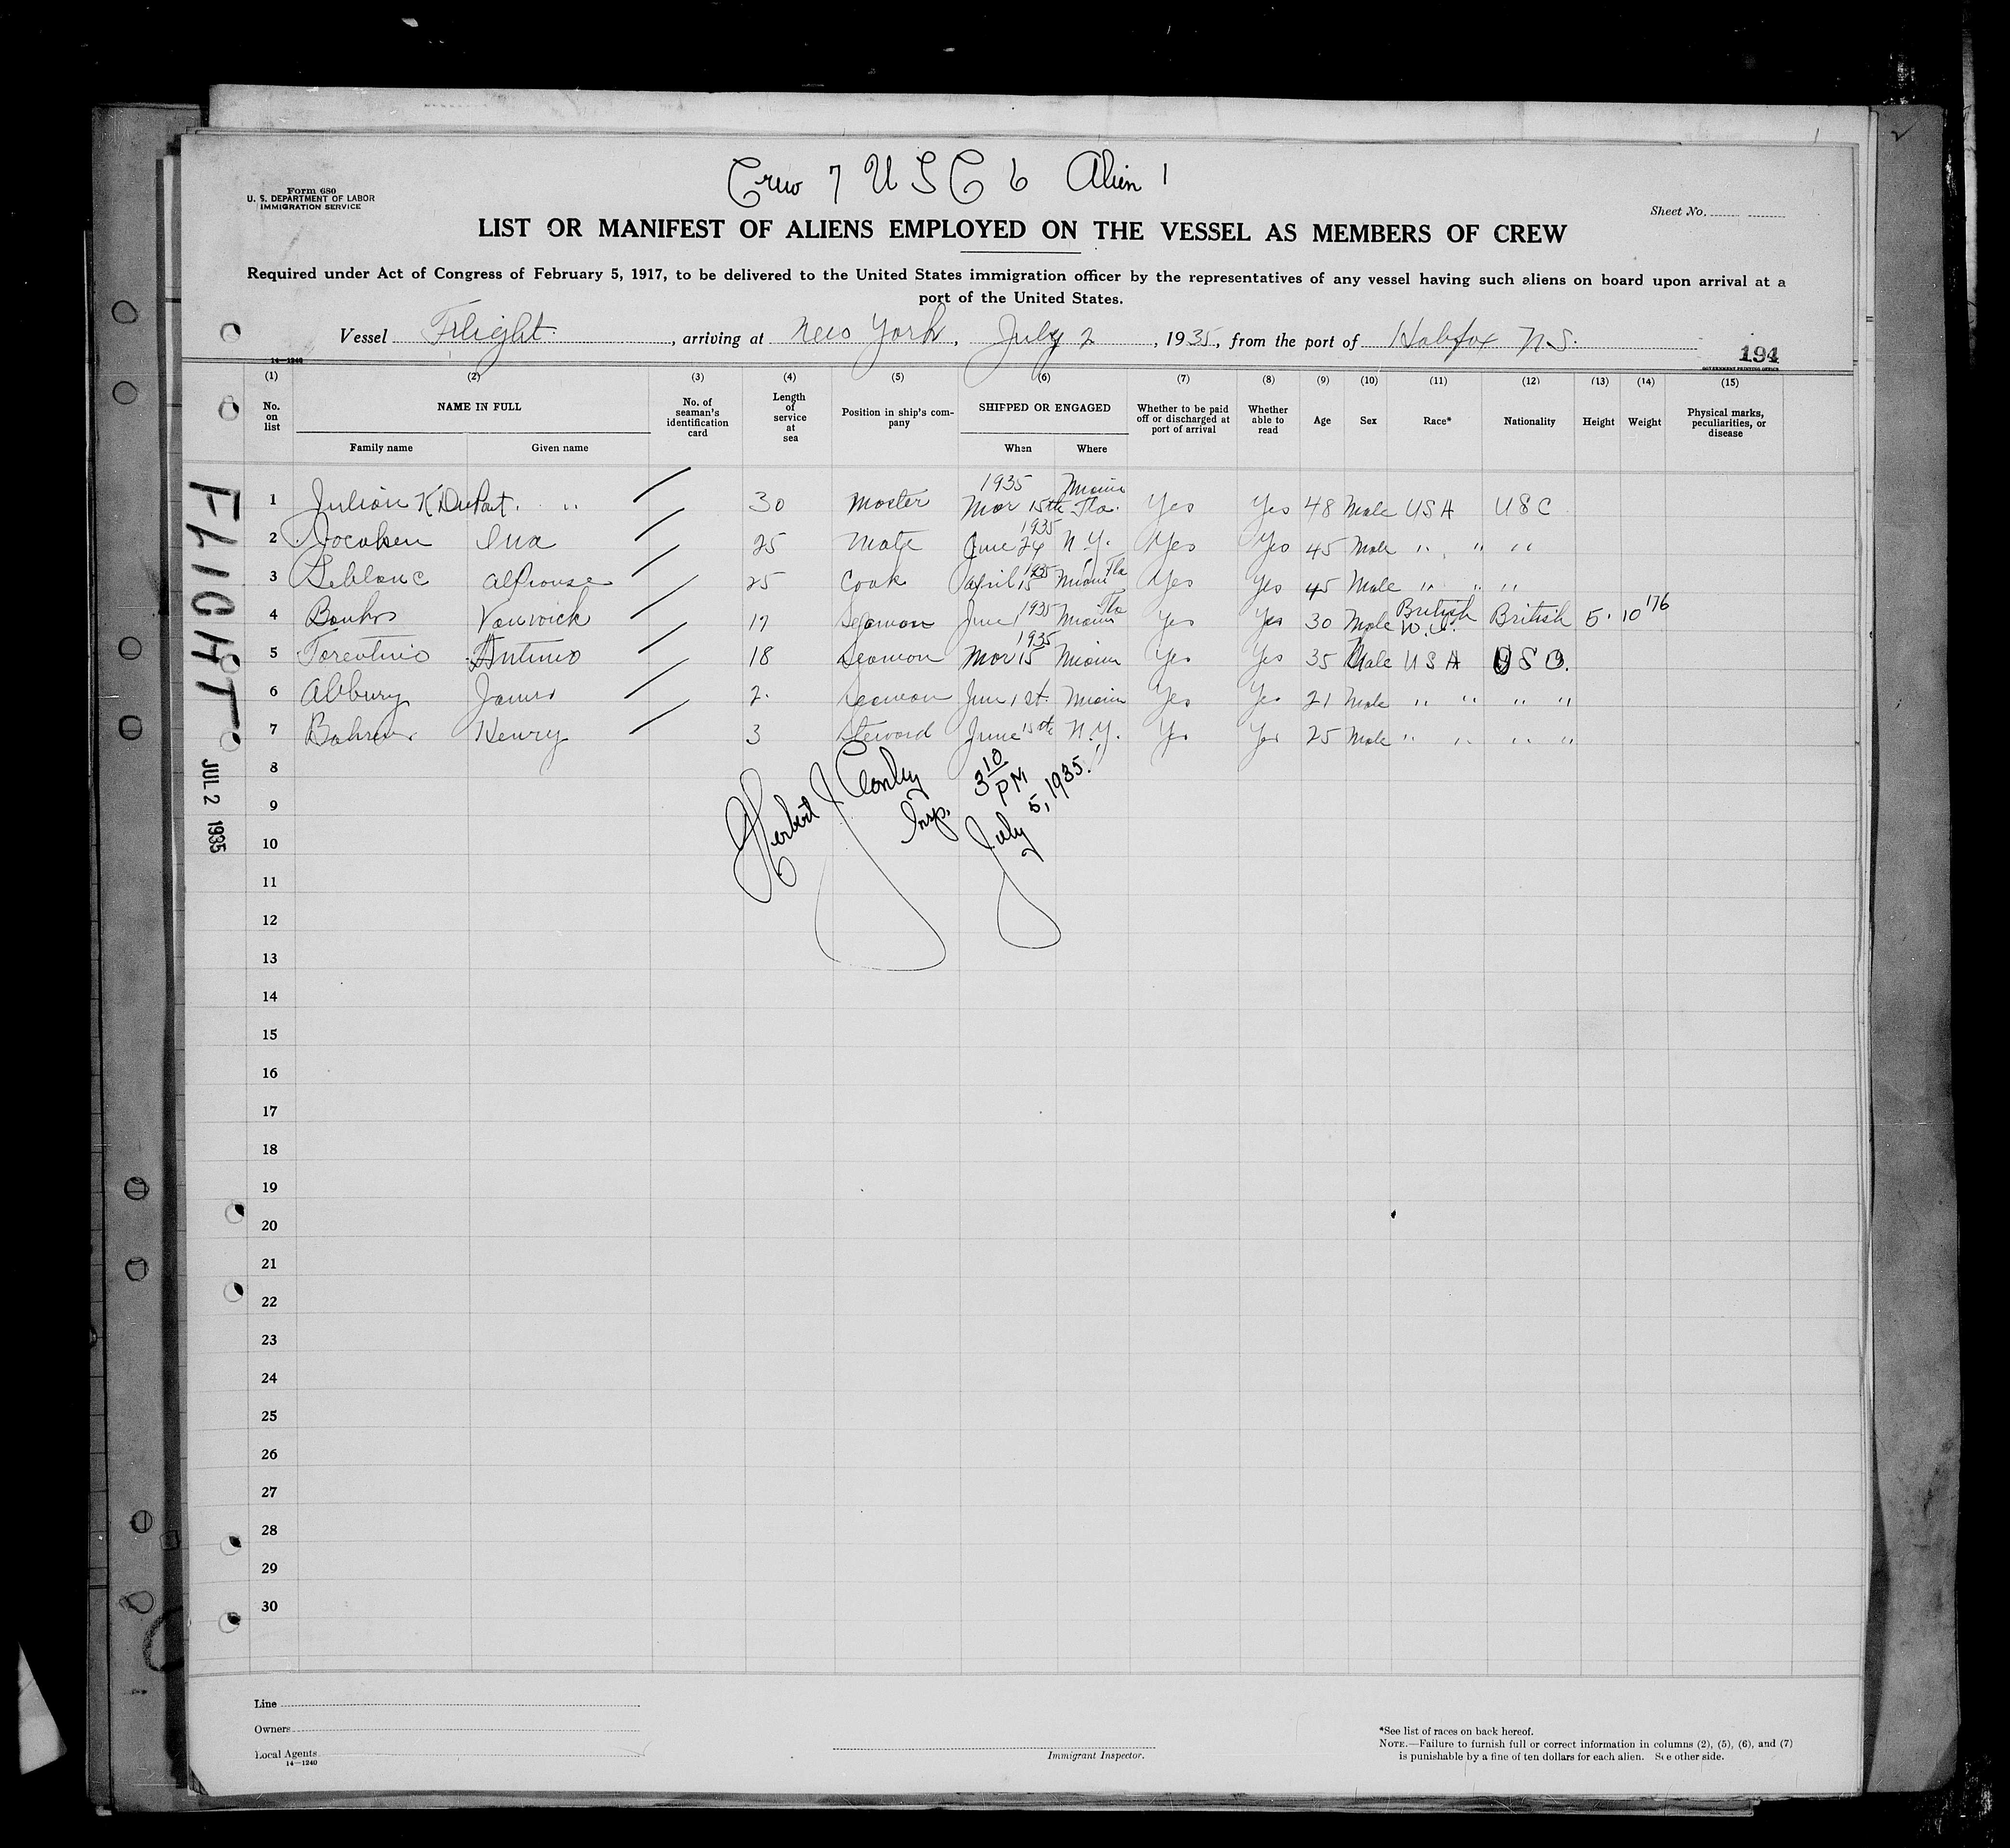 Crew 7 USC 6 Alien 1
Form 680
U. S. DEPARTMENT OF LABOR
IMMIGRATION SERVICE
Sheet No.
LIST OR MANIFEST OF ALIENS EMPLOYED ON THE VESSEL AS MEMBERS OF CREW
Required under Act of Congress of February 5, 1917, to be delivered to the United States immigration officer by the representatives of any vessel having such aliens on board upon arrival at a
port of the United States.
Vessel Flight, arriving at New York, July 2, 1935, from the port of Halifax N.S.
14—1240
194
GOVERNMENT PRINTING OFFICE
(1) (2) (3) (4) (5) (6) (7) (8) (9) (10) (11) (12) (13) (14) (15)
No. on list NAME IN FULL No. of seaman's identification card Length of service at sea Position in ship's company SHIPPED OR ENGAGED Whether to be paid off or discharged at port of arrival Whether able to read Age Sex Race* Nationality Height Weight Physical marks, peculiarities, or disease
Family name Given name When Where
1 Julian K DuPont. " 30 Master 1935 Mar 15th Miami Fla. Yes Yes 48 Male USA USC
2 Ina 25 Mate 1935 June 24 N.Y. Yes Yes 45 Male " " "
3 Leblanc Alphonse 25 Cook April 15 1935 Miami Fla Yes Yes 45 Male " " "
4 Vanwick 17 Seaman June 1 1935 Miami Fla Yes Yes 30 Male British W.I. British 5. 10 176
5 Antinio 18 Seaman Mar 15 1935 Miami Yes Yes 35 Male USA USC.
6 Abbury James 2. Seaman June 1st. Miami Yes Yes 21 Male " " " "
7 Henry 3 Steward June 15th N.Y. Yes Yes 25 Male " " " "
8
9
10
11
12
13
14
15
16
17
18
19
20
21
22
23
24
25
26
27
28
29
30
Herbert J Conley
Insp.
3 10 PM
July 5, 1935.
FLIGHT
JUL 2 1935
Line
Owners
Local Agents
14—1240
Immigrant Inspector.
*See list of races on back hereof.
NOTE.—Failure to furnish full or correct information in columns (2), (5), (6), and (7)
is punishable by a fine of ten dollars for each alien. See other side.